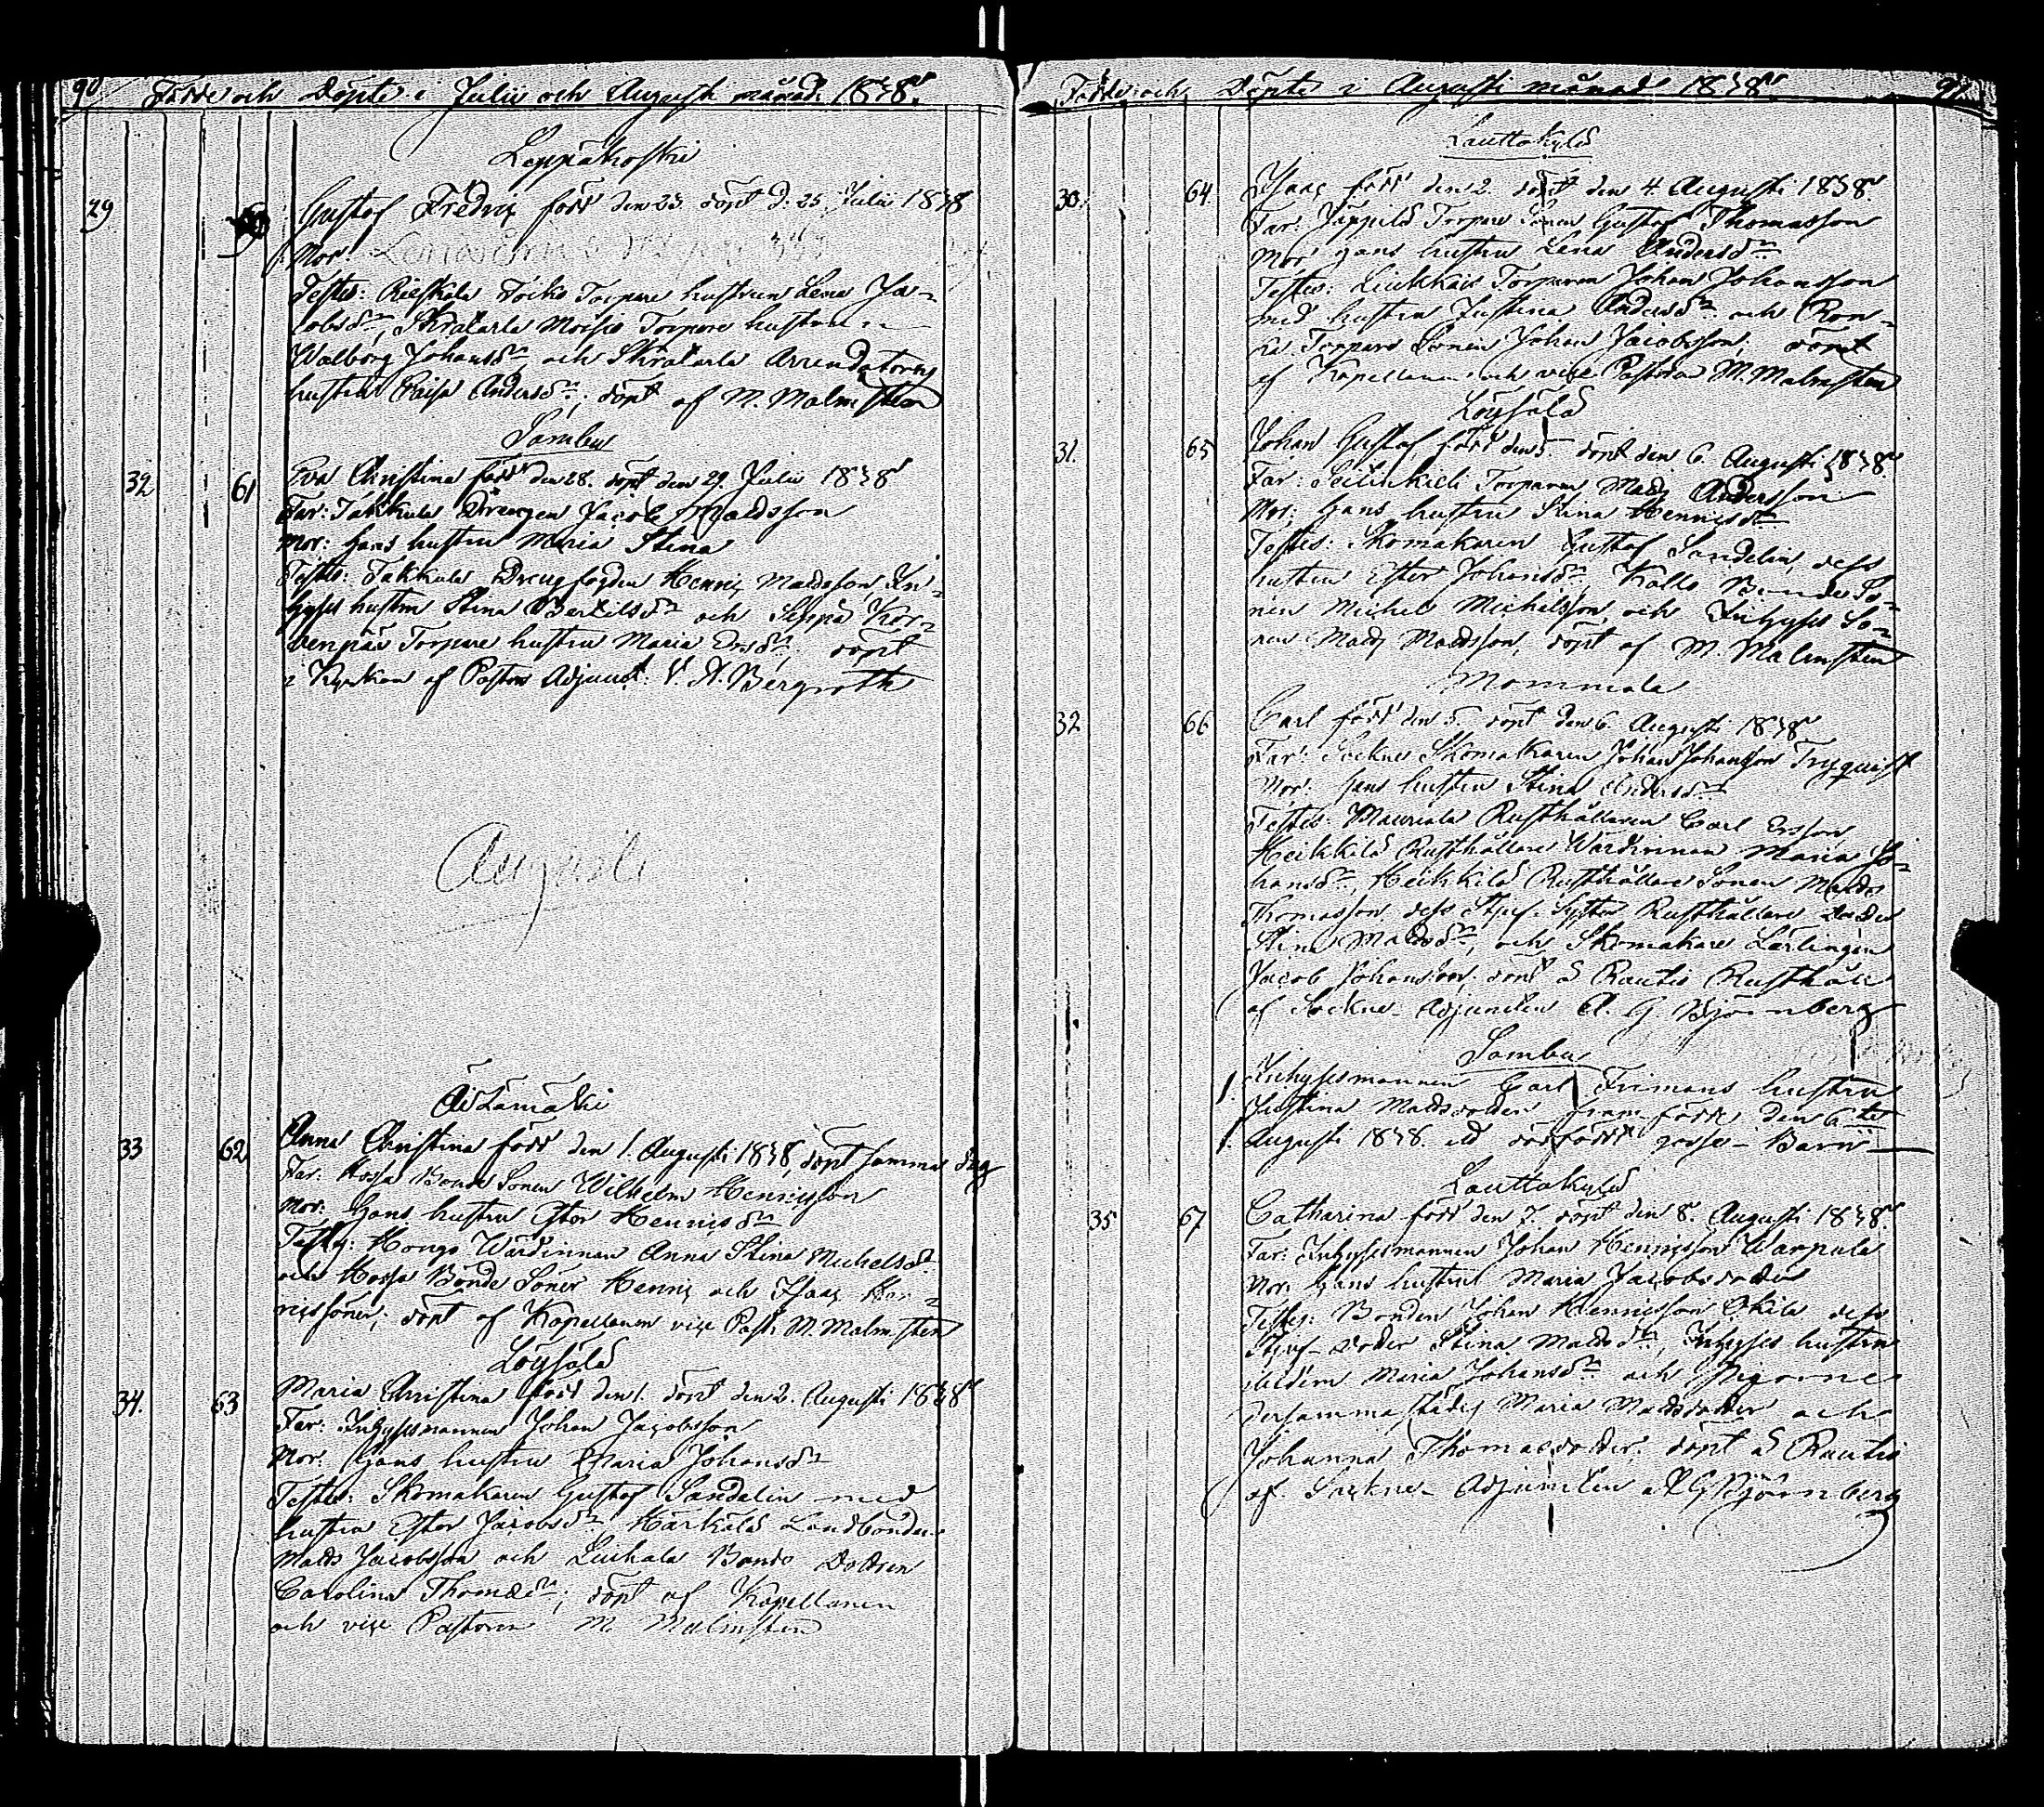 90. Födde och Döpte i Julii och Augusti månad. 1838.
Leppäkoski
29 60 Gustaf Fredric född den 23. döpt d. 25. Julii 1838
Mor:
Testes: Rieskala Torpare hustrun Lena Ja-
cobsdr, Torpare hustrun
Walborg Johansdr och Arrendatorns
hustru Caisa Andersdr; döpt af M. Malmsten
Sambu
32 61 Eva Christina född den 28. döpt den 29. Julii 1838
Far: Takkula Drengen Jacob Madsson
Mor: hans hustru Maria Stina
Testes: Takkula Drengfogden Henric Madsson In-
hyses hustru Stina Bertilsdr och Seppä Kor-
venpää Torpare hustru Maria Ersdr, döpt
i Kyrkan af Pastors Adjunct: Bergroth
Augusti
Äitämäki
33 62 Anna Christina född den 1. Augusti 1838, döpt samma dag
Far: Hossa Bonde Sonen Wilhelm Henricsson
Mor: hans hustru Ester Henricsdr
Testes: Hongo Wärdinnan Anna Stina Michelsdr
och Hossa Bonde Söner Henric och Isaac Hen-
ricssöner; döpt af Kapellanen vice Past: M. Malmsten
Löysälä
34. 63 Maria Christina född den 1. döpt den 2. Augusti 1838
Far: Inhysesmannen Johan Jacobsson
Mor: hans hustru Maria Johansdr
Testes: Skomakaren Gustaf Sandelin med
hustru Ester Jacobsdr Härkälä Landbonden
Mads Jacobsson och Bonde Dottren
Carolina Thomædr; döpt af Kapellanen
och vice Pastoren M Malmsten
Födde och Döpte i Augusti månad 1838. 91.
Lauttakylä
30. 64 Isaac född den 2. döpt den 4. Augusti 1838.
Far: Torpare Sonen Gustaf Thomasson
Mor hans hustru Lena Andersdr
Testes: Torparen Johan Johansson
med hustru Justina Andersdr och
Torpare Sonen Johan Jacobsson; döpt
af Kapellanen och vice Pastoren M. Malmsten
Löysälä
31. 65 Johan Gustaf född den 5 döpt den 6. Augusti 1838.
Far: Torparen Mads Andersson
Mor: hans hustru Stina Henricsdr
Testes: Skomakaren Gustaf Sandelin, dess
hustru Ester Johansdr, Bonde So-
nen Michel Michelsson, och Inhyses So-
nen Mads Madsson, döpt af M. Malmsten
Mommola
32 66 Carl född den 5. döpt den 6. Augusti 1838.
Far: Sockne Skomakaren Johan Johansson
Mor: hans hustru Stina Andersdr
Testes: Mauriala Rusthållaren Carl Ersson,
Heikkilä Rusthållare Wärdinnan Maria Jo-
hansdr, Heikkilä Rusthållare Sonen Mads
Thomasson dess Styf-Syster Rusthållare Dotter
Stina Madsdr, och Skomakare Lärlingen
Jacob Johansson; döpt å Rautio Rusthåll
af Sockne-Adjuncten A. G. Björnberg
Sambu
1. Inhysesmannen Carl Frimans hustru
Justina Madsdotter framfödde den 6te
1. Augusti 1838. ett dödfödt gosse-Barn
Lauttakylä
35 67 Catharina född den 7. döpt den 8. Augusti 1838.
Far: Inhysesmannen Johan Henricsson Warpula
Mor: hans hustru Maria Jacobsdotter
Testes: Bonden Johan Henricsson dess
Styf-Dotter Stina Madsdr, Inhyses hustrun
Maria Johansdr och Pigorne
dersammastädes Maria Madsdotter och
Johanna Thomasdotter, döpt å Rautio
af Sockne-Adjuncten A G Björnberg